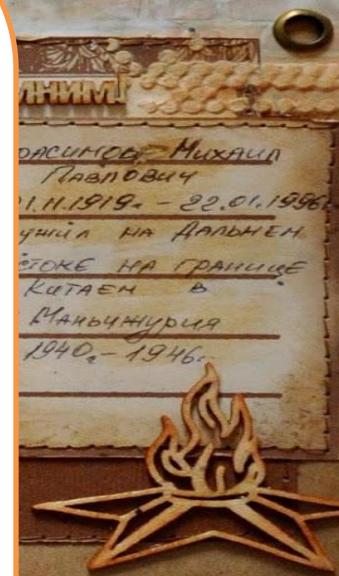 МНИМ!
РАСИМОВ МИХАИЛ
ПАВЛОВИЧ
01.11.1919г. – 22.01.1996г.
УЖИЛ НА ДАЛЬНЕМ
СТОКЕ НА ГРАНИЦЕ
КИТАЕМ В
МАНЬЧЖУРИЯ
1940г. – 1946г.